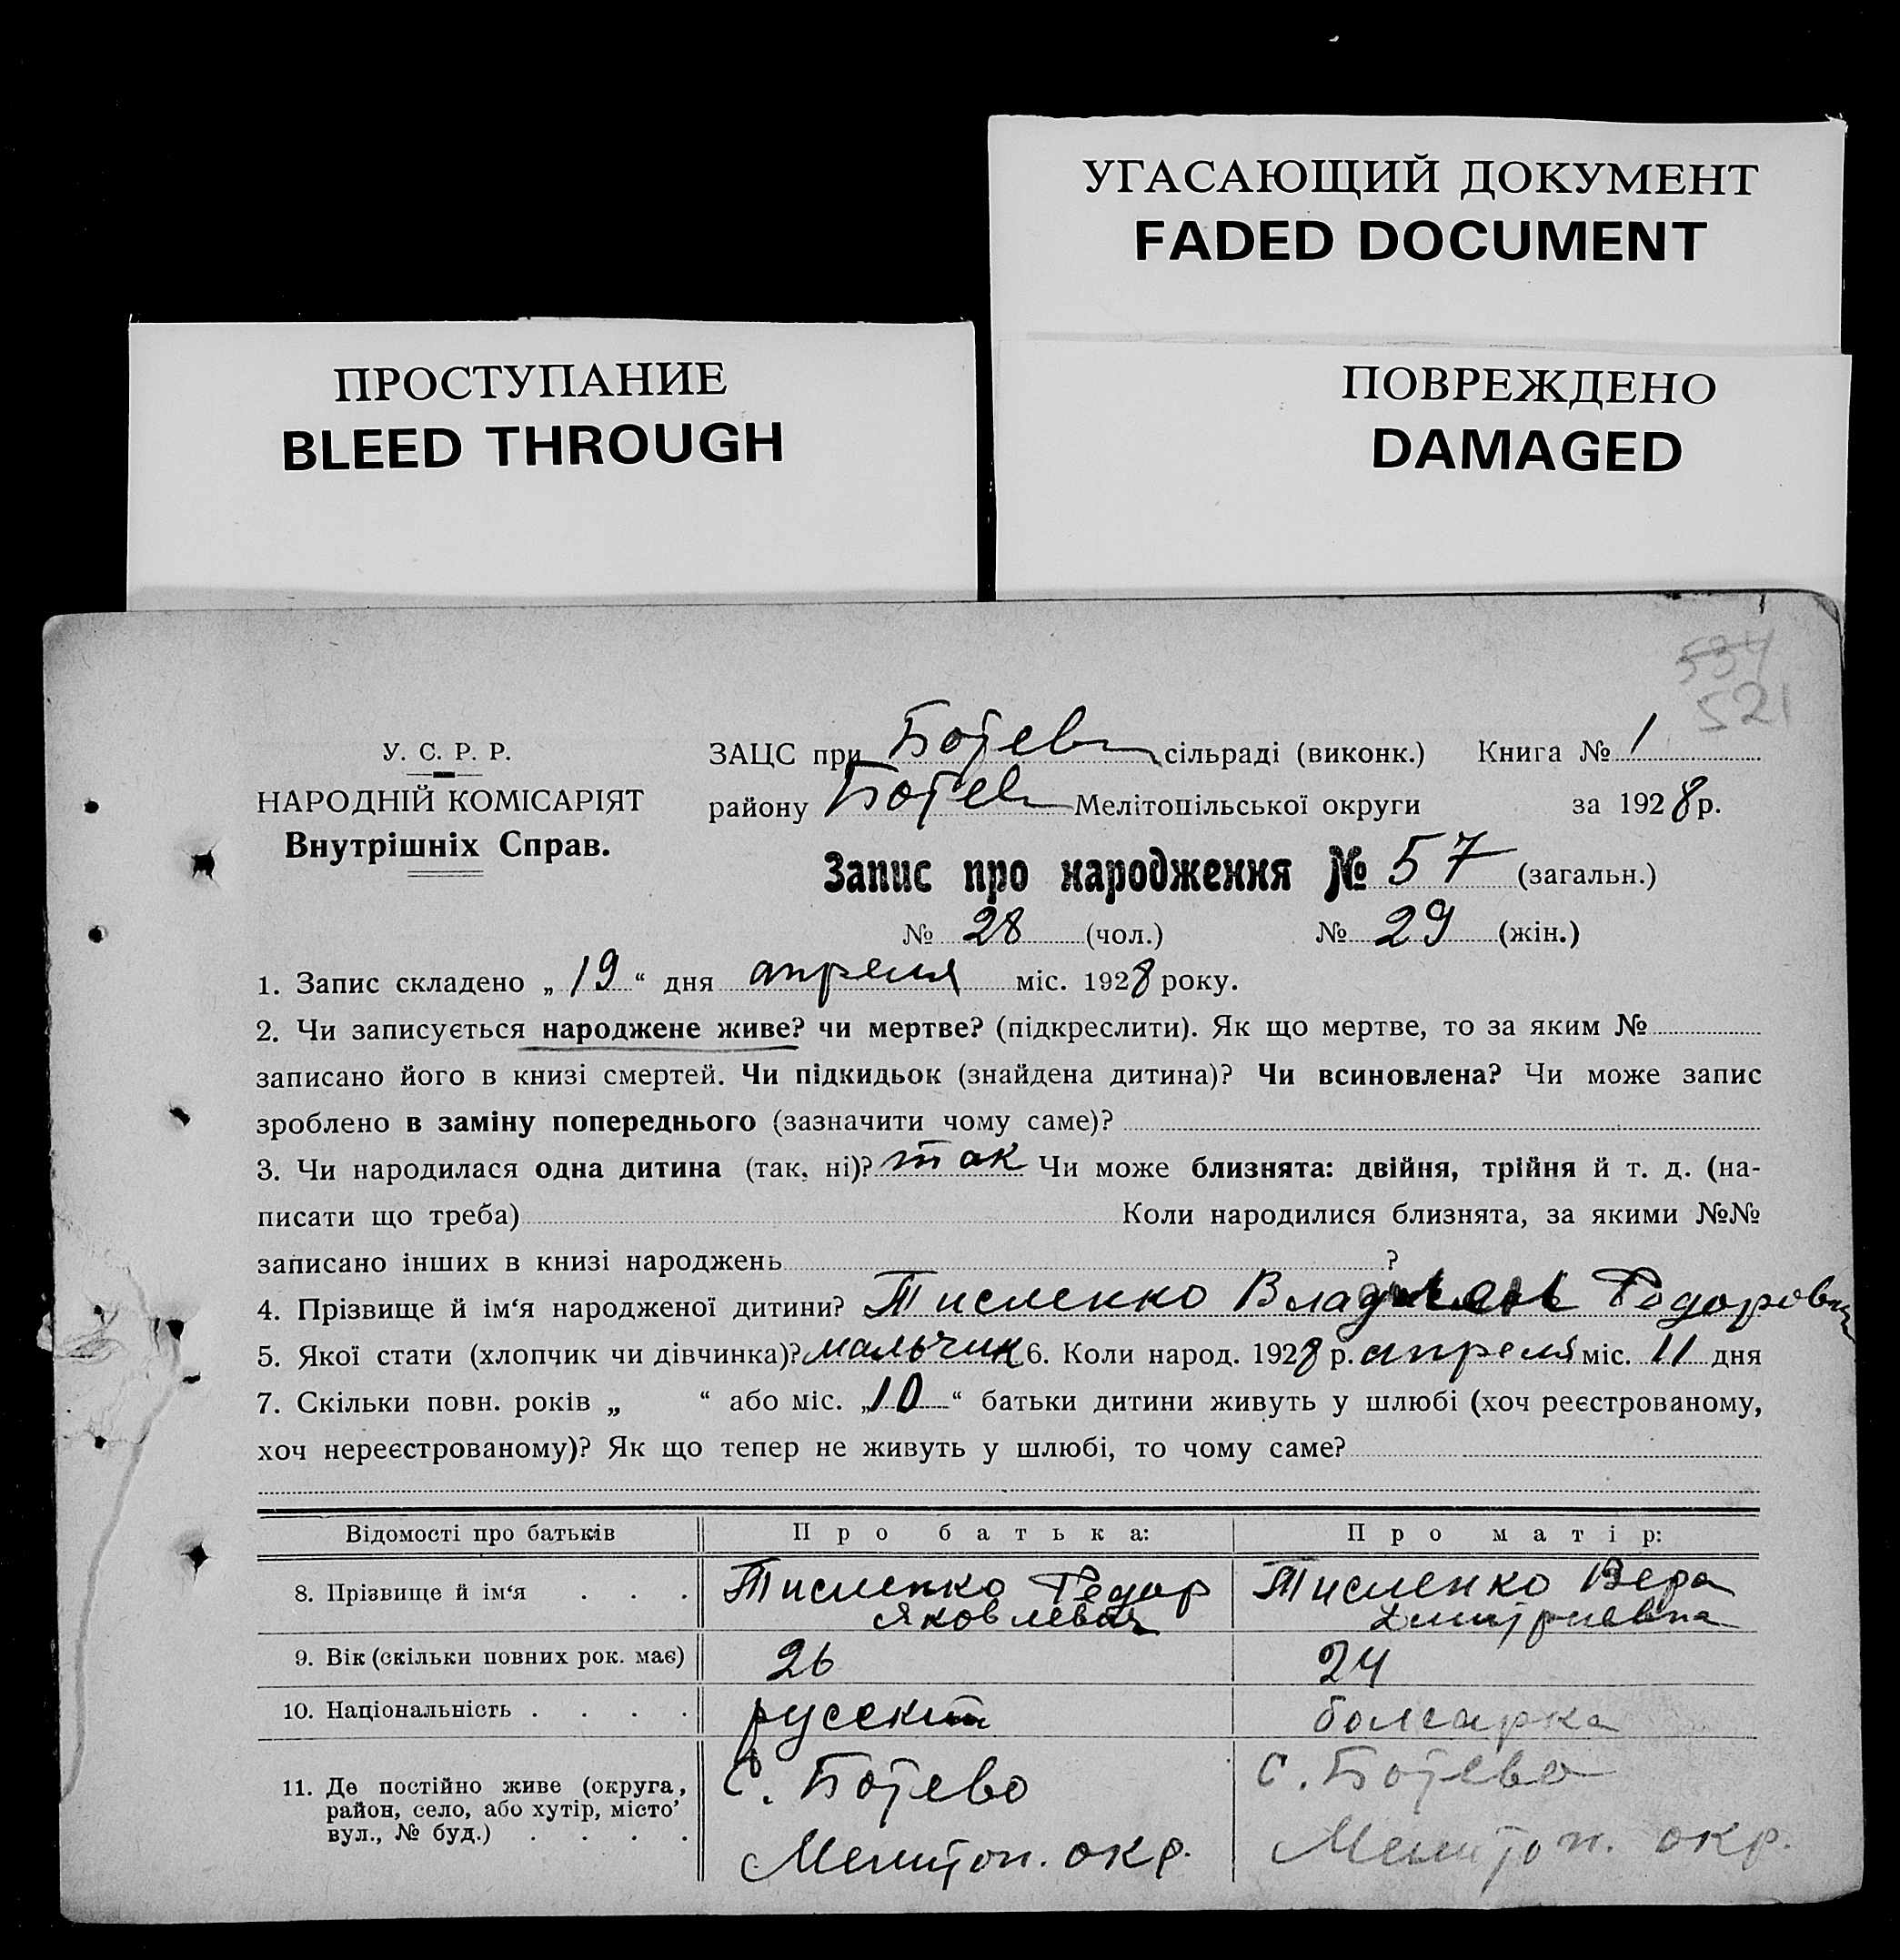 УГАСАЮЩИЙ ДОКУМЕНТ
FADED DOCUMENT
ПРОСТУПАНИЕ
BLEED THROUGH
ПОВРЕЖДЕНО
DAMAGED
534
521
У. С. Р. Р.
НАРОДНІЙ КОМІСАРІЯТ
Внутрішніх Справ.
ЗАЦС при Ботев сільраді (виконк.) Книга № 1
району Ботев Мелітопільської округи за 1928 р.
Запис про народження № 57 (загальн.)
№ 28 (чол.) № 29 (жін.)
1. Запис складено „19“ дня апреля міс. 1928 року.
2. Чи записується народжене живе? чи мертве? (підкреслити). Як що мертве, то за яким №
записано його в книзі смертей. Чи підкидьок (знайдена дитина)? Чи всиновлена? Чи може запис
зроблено в заміну попереднього (зазначити чому саме)?
3. Чи народилася одна дитина (так, ні)? так Чи може близнята: двійня, трійня й т. д. (на-
писати що треба) Коли народилися близнята, за якими №№
записано інших в книзі народжень ?
4. Прізвище й ім‘я народженої дитини? Тисленко Федоров
5. Якої стати (хлопчик чи дівчинка)? мальчик 6. Коли народ. 1928 р. апреля міс. 11 дня
7. Скільки повн. років „ “ або міс. „10“ батьки дитини живуть у шлюбі (хоч реєстрованому,
хоч нереєстрованому)? Як що тепер не живуть у шлюбі, то чому саме?
Відомості про батьків Про батька: Про матір:
8. Прізвище й ім‘я . . . Тисленко Федор Тисленко Вера
Дмитриевна
9. Вік (скільки повних рок. має) 26 24
10. Національність . . . . русский болгарка
11. Де постійно живе (округа, район, село, або хутір, місто, вул., № буд.) . . . . с. Ботево с. Ботево
Мелитоп. окр. Мелитоп. окр.